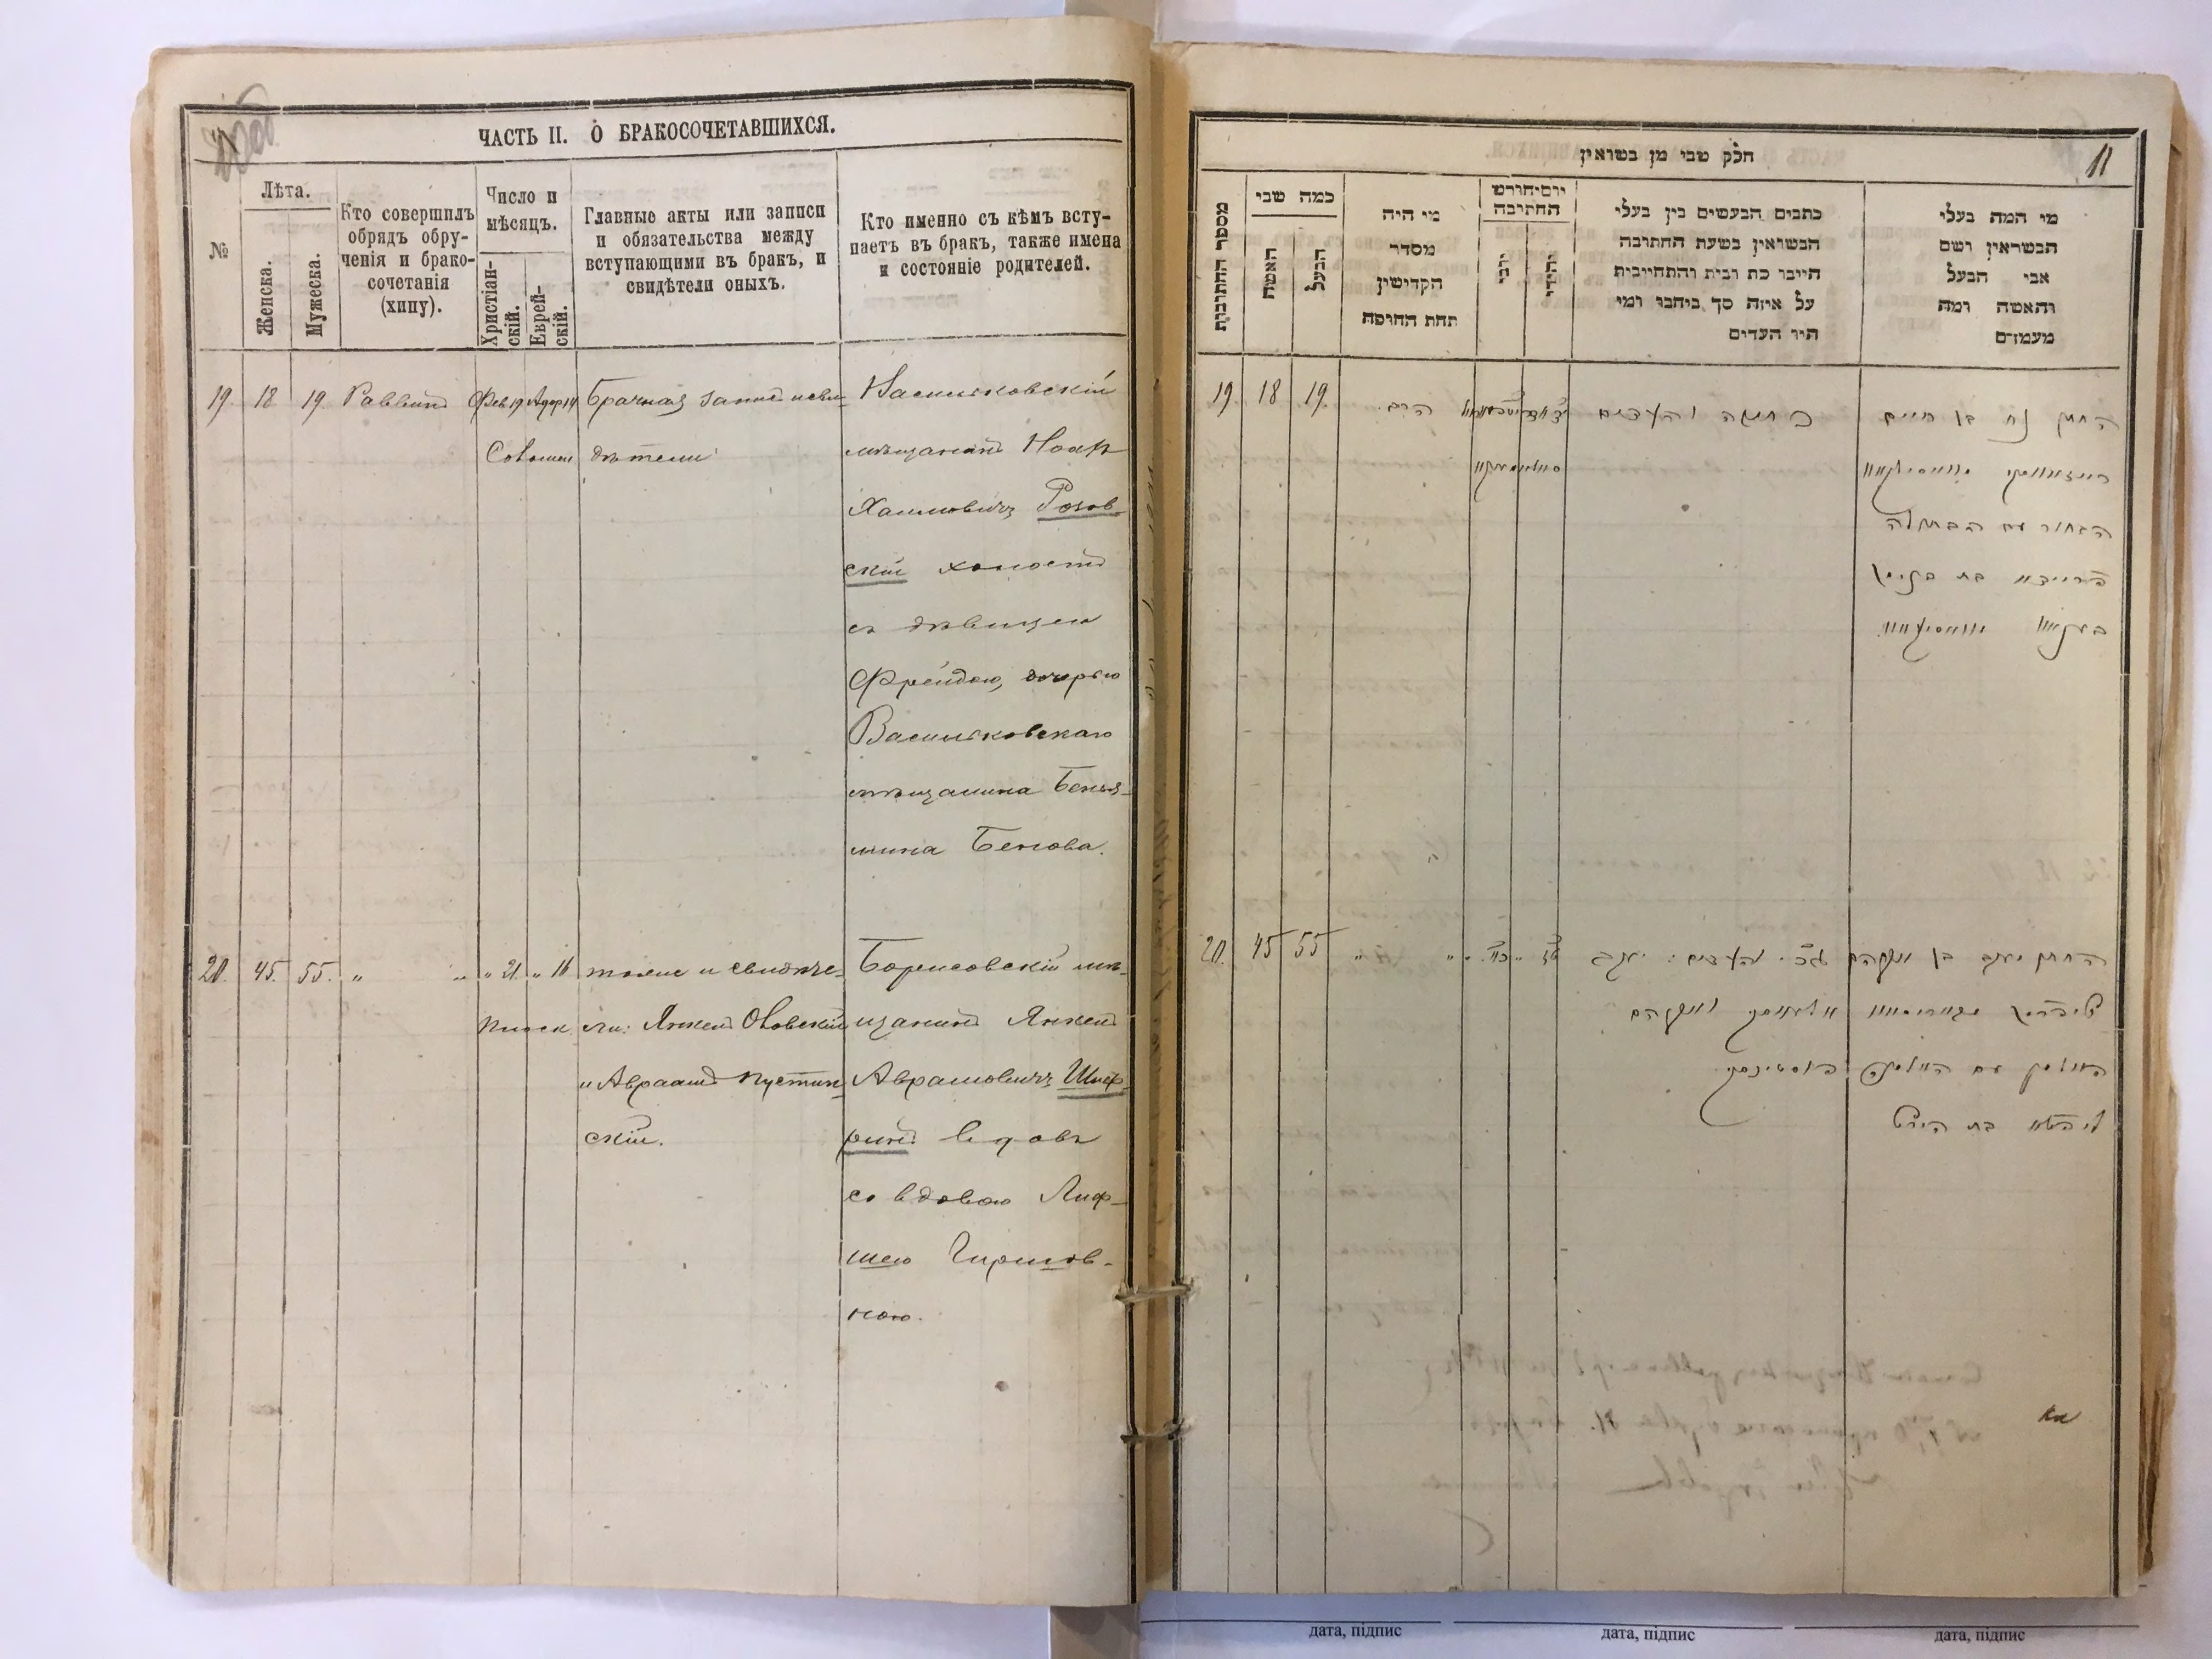 ЧАСТЬ II. О БРАКОСОЧЕТАВШИХСЯ.
№
Лѣта.
Женска.
Мужеска.
Кто совершилъ
обрядъ обру-
ченія и брако-
сочетанія
(хипу).
Число и
мѣсяцъ.
Христіан-
скій.
Еврей-
скій.
Главные акты или записи
и обязательства между
вступающими въ бракъ, и
свидѣтели оныхъ.
Кто именно съ кѣмъ всту-
паетъ въ бракъ, также имена
и состояніе родителей.
19. 18 19. Раввинъ Фев 19 Адор 14
Брачная запис и сви-
дѣтели
Васильковскій
мѣщанинъ Ноахъ
Хаимовичъ Розов-
скій холостъ
съ дѣвицею
Фрейдою, дочерью
Васильковскаго
мѣщанина Бенья-
мина Бенова.
20. 45. 55. „ „ „ 21. „ 16
тоже и свидѣте-
ли: Янкель Оловскій
и Авраамъ Пустин-
скій.
Борисовскій мѣ-
щанинъ Янкель
Аврамовичъ Шиф-
ринъ вдовъ
со вдовою Лиф-
шею Гиршов-
ною.
חלק שני מן נשואין
11
מספר החתונות
כמה שני
האשה
הבעל
מי היה
מסדר
הקדישין
תחת החופה
יום וחודש
החתונה
יוני
יהודי
כתבים הנעשים בין בעלי
הנשואין בשעת החתונה
היינו כת ובית והתחייבות
על איזה סך ניתנו ומי
היו העדים
מי המה בעלי
הנשואין ושם
אבי הבעל
והאשה ומה
מעמדם
19. 18 19. הרב
כתובה והעדים
החתן נח בן חיים
הבחור עם הבתולה
פריידא בת בנימין
20. 45 55
החתן יעקב בן אברהם
שיפרין
האלמן עם האלמנה
ליפשא בת הירש
дата, підпис
дата, підпис
дата, підпис